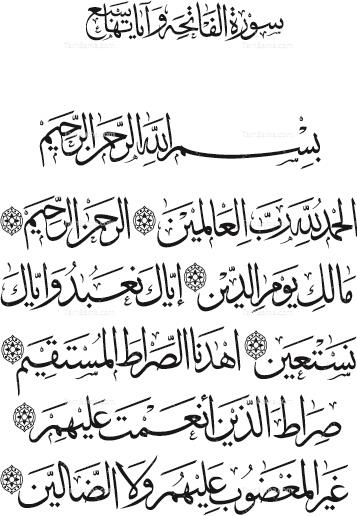 سورة الفاتحه وآياتها سبع
بسم الله الرحمن الرحيم
الحمد لله رب العالمين الرحمن الرحيم
مالك يوم الدين إياك نعبد وإياك
نستعين اهدنا الصراط المستقيم
صراط الذين أنعمت عليهم
غير المغضوب عليهم ولا الضالين